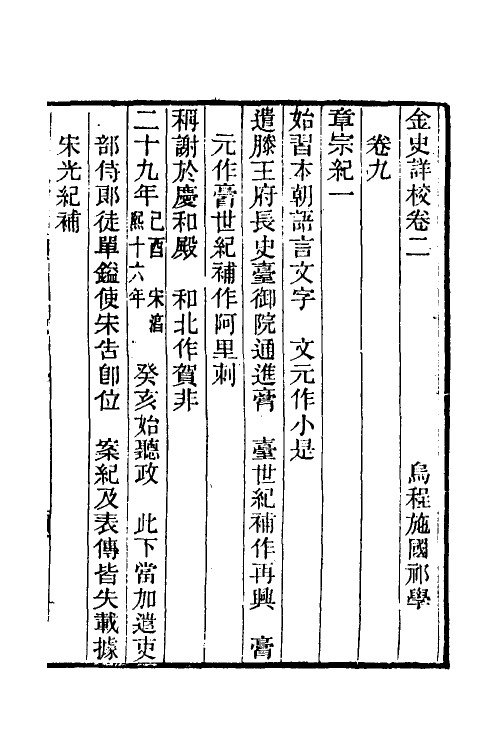 金史詳校卷二　烏程施國祁學
卷九
章宗紀一
始習本朝語言文字　文元作小是
遣滕王府長史臺御院通進膏　臺世紀補作再興　膏
元作膏世紀補作阿里刺
稱謝於慶和殿　和北作賀非
二十九年己酉　宋淳熙十六年　癸亥始聽政　此下當加遣吏
部侍郎徒單鎰使宋告卽位　案紀及表傳皆失載據
宋光紀補